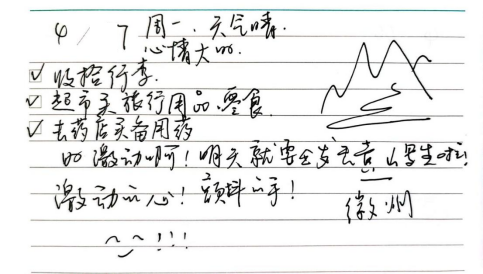 4/7 周一. 天气晴.
心情大好.
✓ 收拾行李.
✓ 超市买旅行用品.零食.
✓ 去药店买备用药
好激动啊!明天就要出发去黄山写生啦!
激动的心!颤抖的手!
徽州
!!!